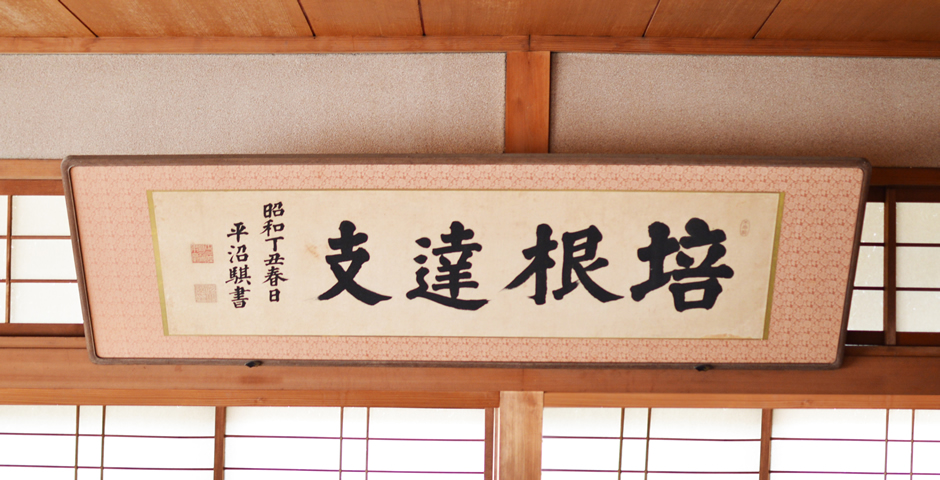 培根達支
昭和丁丑春日
平沼騏書